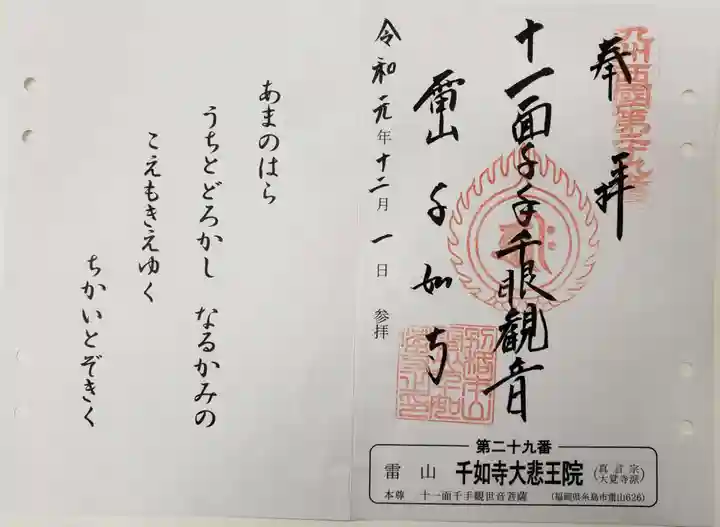 九州西國第二十九番
奉拝
十一面千手千眼觀音
雷山千如寺
令和元年十二月一日 参拝
あまのはら
うちとどろかし なるかみの
こえもきえゆく
ちかいとぞきく
第二十九番
雷山 千如寺大悲王院 (真言宗大覚寺派)
本尊 十一面千手観世音菩薩 (福岡県糸島市雷山626)